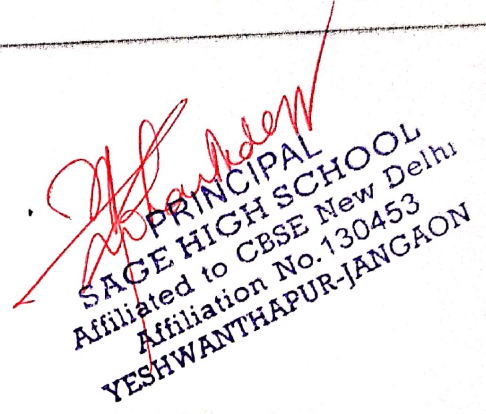 PRINCIPAL
SAGE HIGH SCHOOL
Affiliated to CBSE New Delhi
Affiliation No.130453
YESHWANTHAPUR-JANGAON